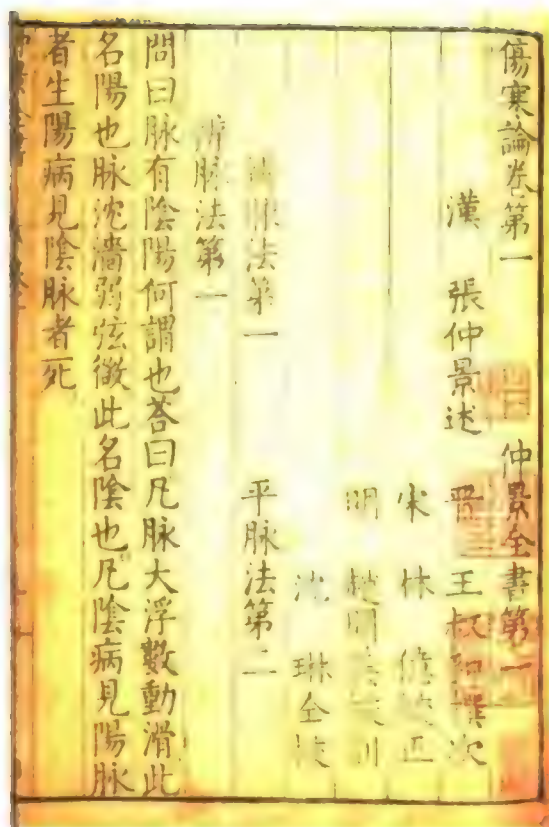 傷寒論卷第一 仲景全書第一
漢 張仲景述 晉 王叔和撰次
宋 林 億校正
明 趙開美校刻
沈 琳仝校
辨脉法第一 平脉法第二
辨脉法第一
問曰脉有陰陽何謂也荅曰凡脉大浮數動滑此
名陽也脉沈濇弱弦微此名陰也凡陰病見陽脉
者生陽病見陰脉者死